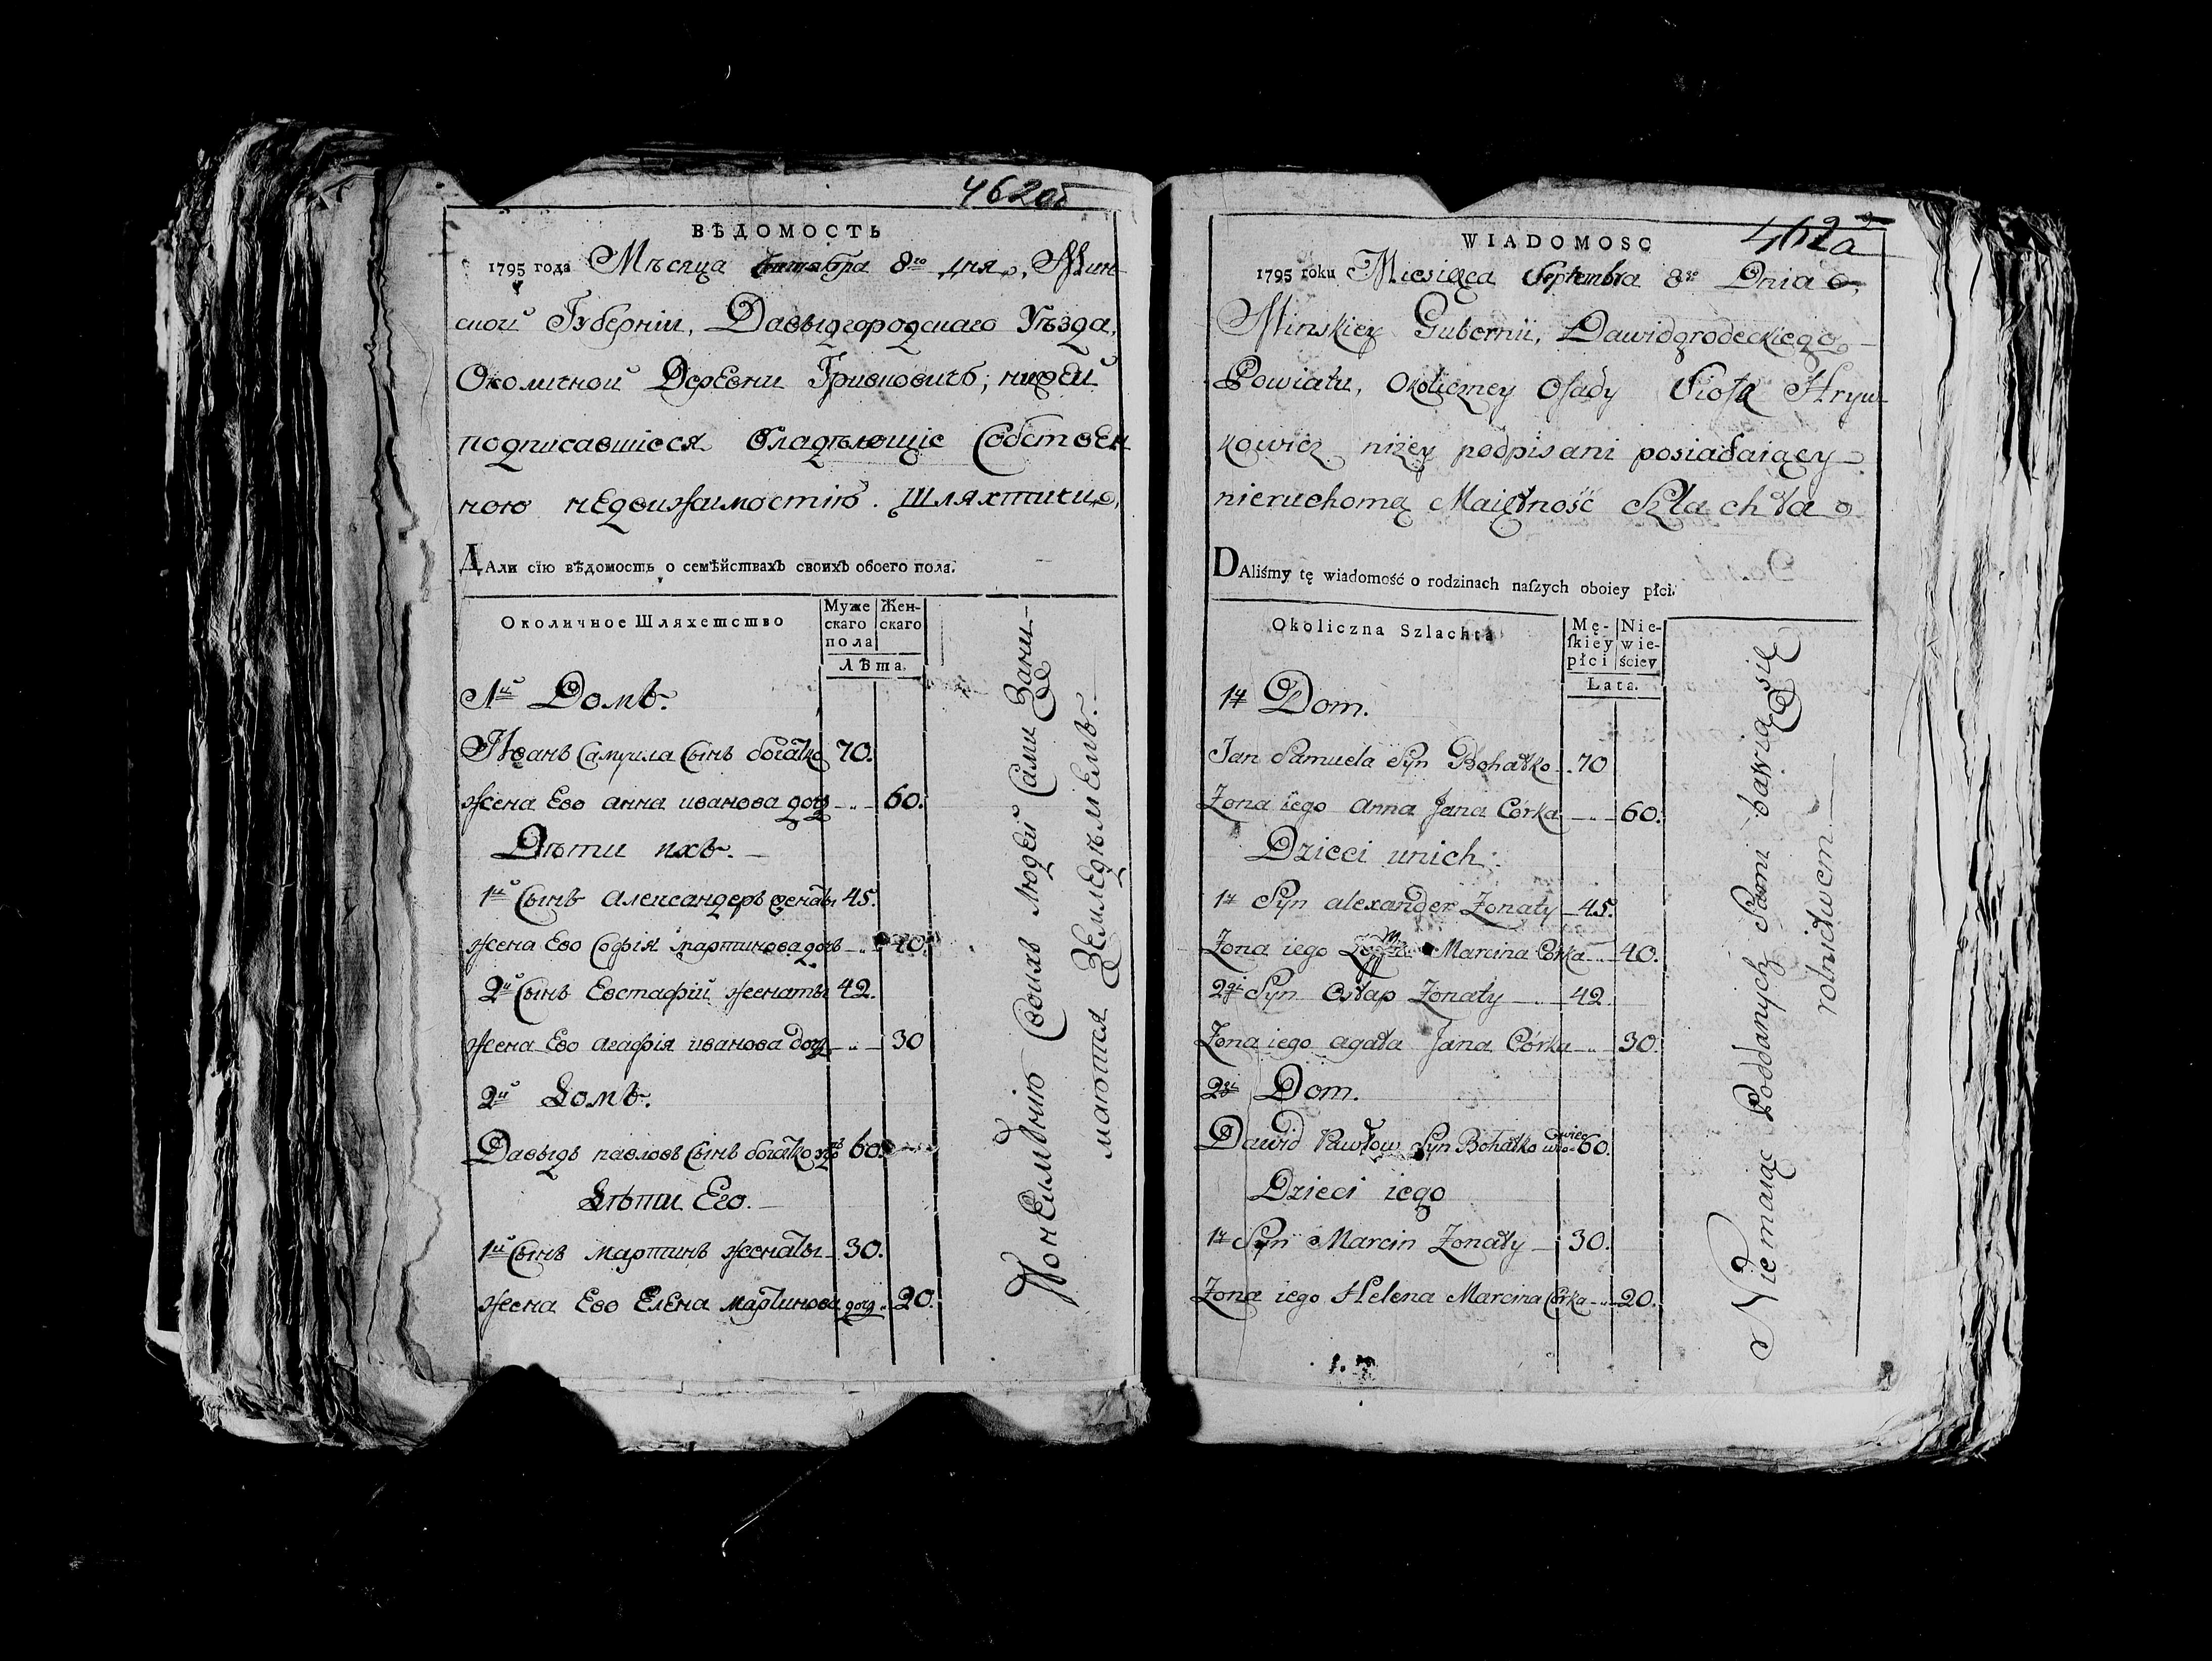 462об
ВѢДОМОСТЬ
1795 года Мѣсяца Сентабра 8го дня, Мин-
ской Губерніи, Давыдгородскаго Уѣзда,
Околичной Деревни Гривковичъ, нижей
подписавшіеся владѣющіе Собствен
ною недвижимостію. Шляхтичи,
ДАли сїю вѣдомость о семѣйствахъ своихъ обоего пола.
Околичное Шляхетство
Муже
скаго
пола
Жен-
скаго
Лѣта.
1й Домъ.
Иванъ Самуила Сынъ богатко 70.
жена Ево анна иванова доч 60.
Дѣти ихъ.
1й Сынъ Александеръ женаты 45.
жена Ево Софія мартинова дочь 40.
2й Сынъ Евстафій женаты 42.
жена Ево агафія иванова доч 30
2й Домъ.
Давыдъ павловъ Сынъ богатко 60.
Дѣти Его.
1й Сынъ мартинъ женаты 30.
жена Ево Елена мартинова доч 20.
Понеимѣнію Своихъ людей Сами Зани-
маются Земледѣліемъ.
462
а
WIADOMOSC
1795 roku Miesiąca Septembra 8go Dnia
Minskiey Gubernii, Dawidgrodeckiego
Powiatu, Okoliczney Osady Sioła Hryw-
kowicz niżey podpisani posiadaiący
nieruchomą Maiętność Szlachta
DAliśmy tę wiadomość o rodzinach naſzych oboiey płci.
Okoliczna Szlachta
Mę-
ſkiey
płci
Nie-
wie-
ściey
Lata.
1y Dom.
Jan Samuela Syn Bohatko 70
Zona iego anna Jana Córka 60.
Dzieci unich.
1y Syn alexander Zonaty 45.
Zona iego Marcina Córka 40.
2gi Syn Ostap Zonaty 42.
Zona iego agata Jana Córka 30.
2gi Dom.
Dawid Pawłow Syn Bohatko wdowiec 60.
Dzieci iego
1y Syn Marcin Zonaty 30.
Zona iego Helena Marcina Córka 20.
Niemaiąc Poddanych Sami bawią się
rolnictwem